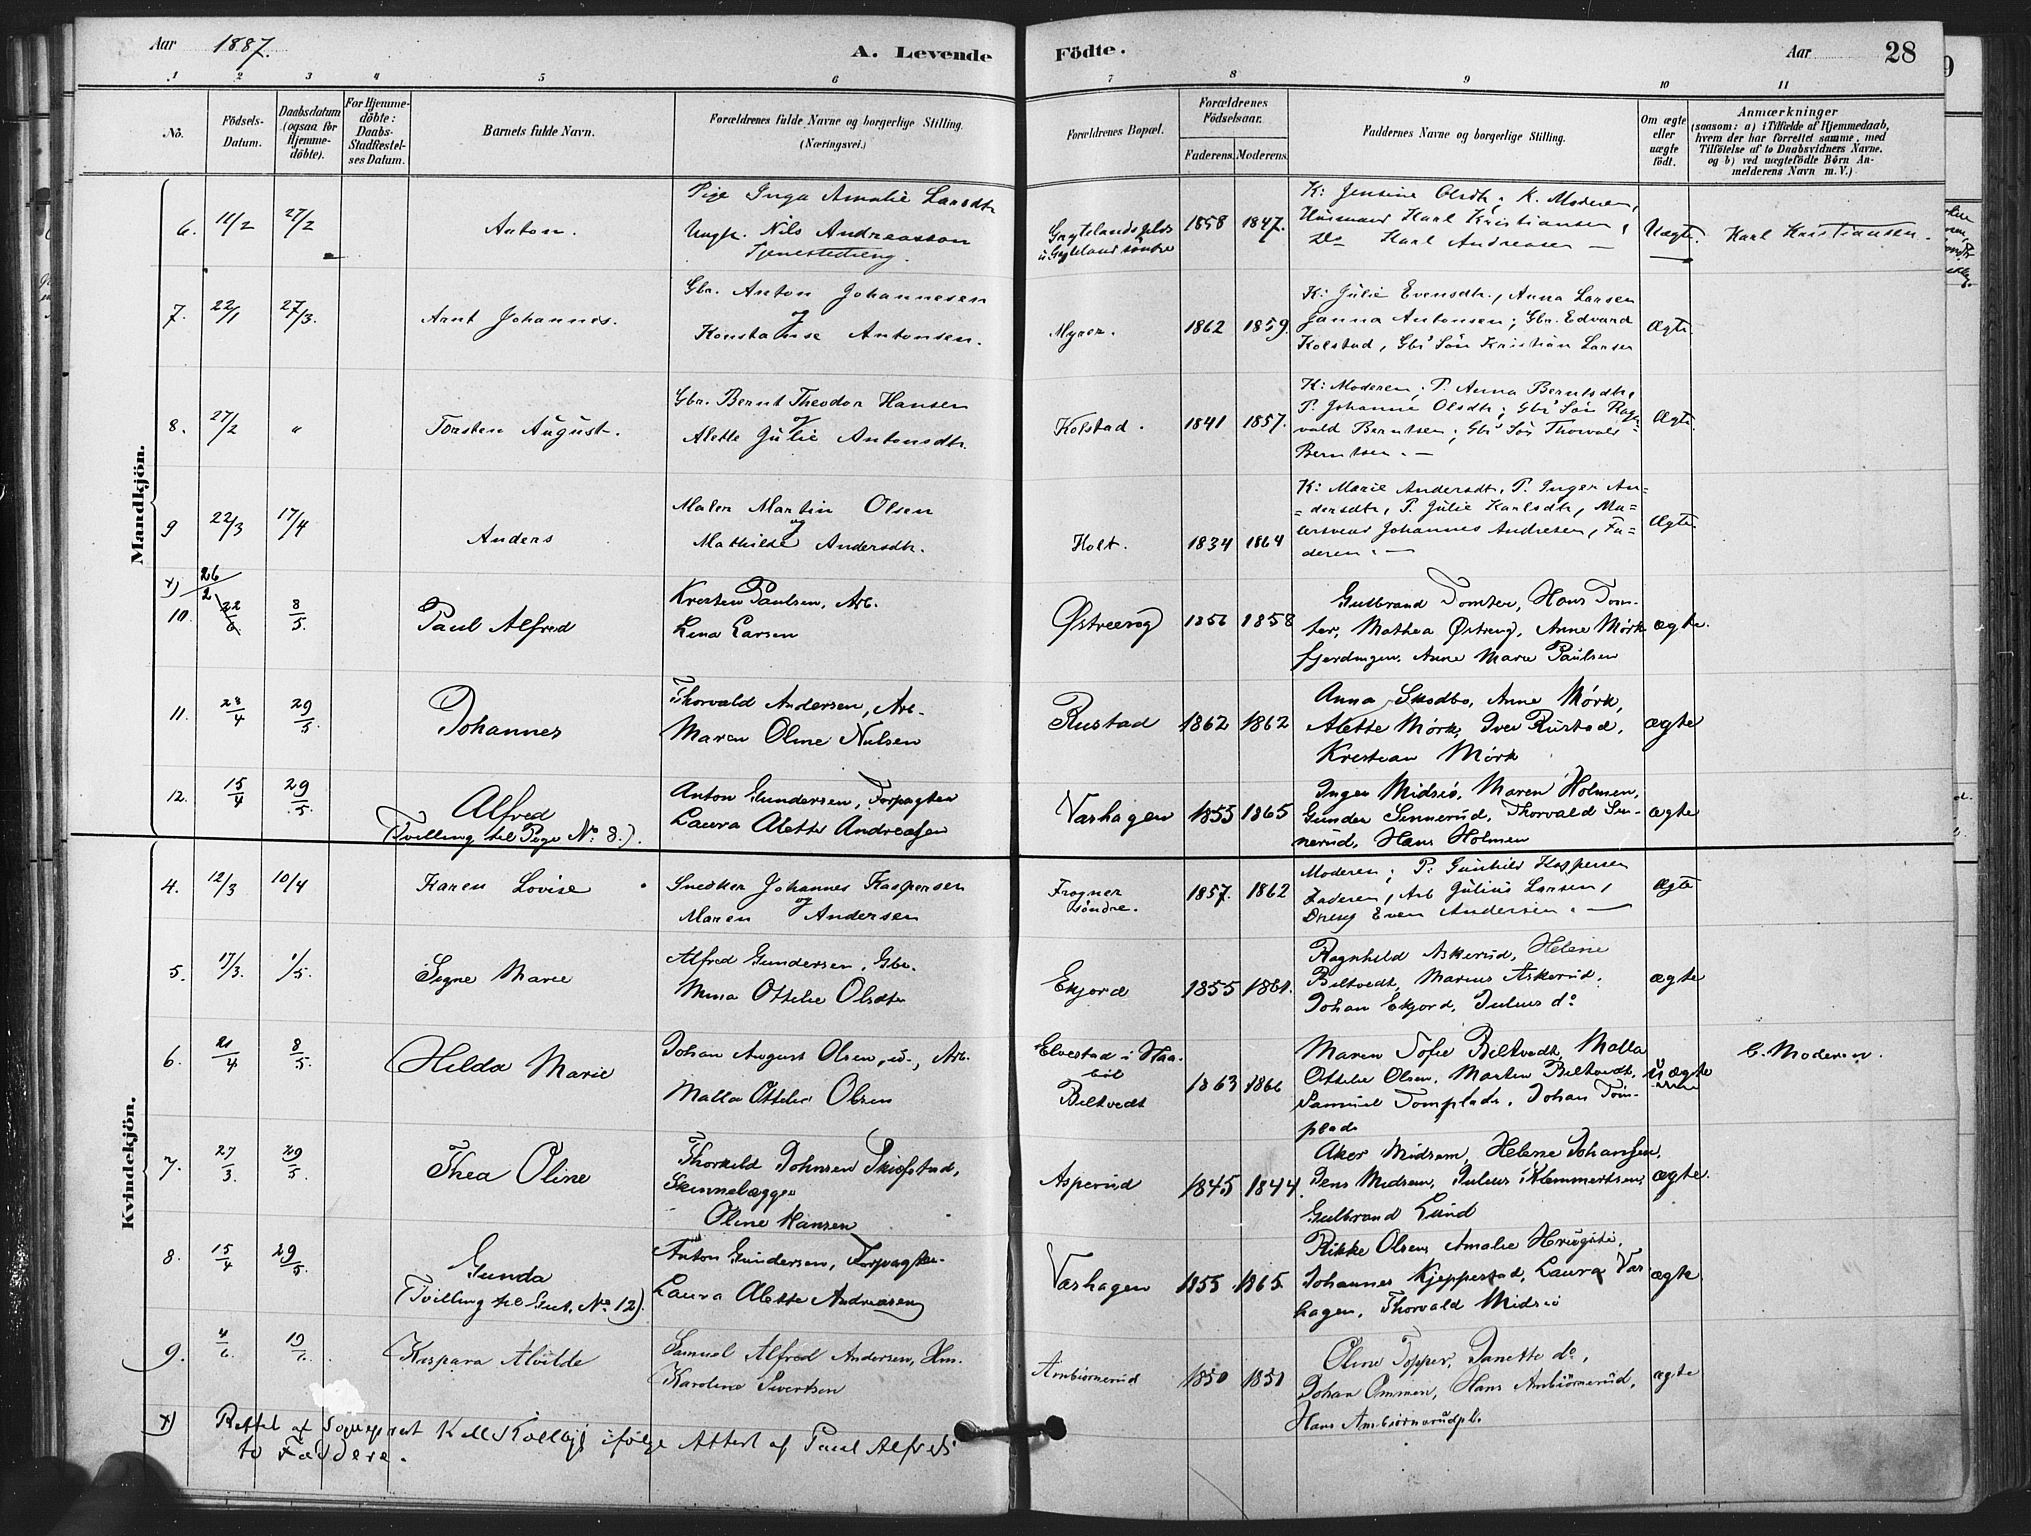 Aar 1887. A. Levende Födte. Aar 28
1 2 3 4 5 6 7 8 9 10 11
No.
Födsels-Datum.
Daabsdatum (ogsaa for Hjemme-döbte).
For Hjemme-döbte: Daabs-Stadfestel-ses Datum.
Barnets fulde Navn.
Forældrenes fulde Navne og borgerlige Stilling. (Næringsvei.)
Forældrenes Bopæl.
Forældrenes Födselsaar.
Faderens. Moderens.
Faddernes Navne og borgerlige Stilling.
Om ægte eller uægte födt.
Anmærkninger
(saasom: a) i Tilfælde af Hjemmedaab,
hvem der har forrettet samme, med
Tilföielse af to Daabsvidners Navne.
og b) ved uægtefödte Börn An-
melderens Navn m.V.)
Mandkjön.
6. 11/2 27/2 Anton.
Pige Inga Amalie Larsdtr
Ungk. Nils Andreasson
Tjenestedreng.
1858 1847.
K: Jensine Olsdtr, K. Moderen,
Husmand Karl Kristiansen,
Do Karl Andreasen —
Uægte.
Karl Kristiansen.
7. 22/1 27/3. Arnt Johannes.
Gbr. Anton Johannesen
og
Konstanse Antonsen.
Myrer. 1862 1859.
K: Julie Evensdtr., Anna Larsen
Janna Antonsen; Gbr. Edvard
Kolstad, Gbr Sön Kristian Larsen
Ægte.
8. 27/2 " Torsten August.
Gbr. Bernt Theodor Hansen
og
Alette Julie Antonsdtr.
Kolstad. 1841 1857.
K: Moderen; P. Anna Berntsdtr,
P. Johanne Olsdtr; Gbr Sön Rag-
vald Berntsen; Gbr Sön Thorvald
Berntsen. —
Ægte.
9 22/3 17/4 Anders
Maler Martin Olsen
og
Mathilde Andersdtr.
Holt. 1834 1864
K: Marie Andersdtr, P. Inger An-
dersdtr, P. Julie Karlsdtr, Ma-
Johannes Andresen, Fa-
deren. —
Ægte.
x) 26/2
10. 8/5. Paul Alfred
Kresten Paulsen, Arb.
Lina Larsen
Østreeng 1856 1858
Gulbrand Tomter, Hans Tom-
ter, Mathea Østreng, Anne Mørk
fjerdingen, Anne Marie Paulsen
ægte.
11. 28/4 29/5. Johannes
Thorvald Andersen, Arb.
Maren Oline Nilsen
Rustad 1862 1862
Anna Skodbo, Anne Mørk,
Alette Mørk, Iver Rustad,
Krestian Mørk
ægte
12. 15/4 29/5. Alfred
(Tvilling til Pige No 8.).
Anton Gundersen, Forpagter
Laura Alette Andreasen
Varhagen 1855 1865
Inger Midsiö, Maren Holmen,
Gunder Sinnerud, Thorvald Sin-
nerud, Hans Holmen
ægte
Kvindekjön.
4. 12/3 10/4 Karen Lovise
Snedker Johannes Kaspersen
og
Maren Andersen
Frogner söndre. 1857. 1862
Moderen; P. Gunhild Kaspersen
Faderen, Arb Julius Larsen,
Dreng Even Andersen. —
ægte
5. 17/3. 1/5. Signe Marie
Alfred Gundersen, Gbr.
Mina Ottilie Olsdtr
Ekjord 1855 1861.
Ragnhild Askerud, Helene
Biltvedt, Marius Askerud.
Johan Ekjord, Julius do
ægte
6. 21/4 8/5. Hilda Marie
Johan August Olsen, u., Arb.
Malla Ottilie Olsen
Elvestad i Haa-
böl
Biltvedt
1863 1866
Maren Sofie Biltvedt, Malla
Ottilie Olsen, Martin Biltvedt,
Samuel Tomplads, Johan Tom-
plads
uægte
C. Moderen.
7. 27/3. 29/5. Thea Oline
Thorkild Johnsen Skiöfstad,
Oline Hansen
Asperud 1845 1844
Midsem, Helene Johansen,
Jens Midsem, Julius Klemmertsen,
Gulbrand Lund
ægte.
8. 15/4 29/5. Gunda
(Tvilling til Gut. No 12).
Anton Gundersen, Forpagter
Laura Alette Andreasen
Varhagen 1855 1865.
Rikke Olsen, Amalie
Johannes Kjeppestad, Laura Var
hagen, Thorvald Midsiö
ægte
9. 4/6. 19/6. Kaspara Alvilde
Samuel Alfred Andersen, Hm.
Karoline Sivertsen
Ambiörnerud 1850 1851
Oline Topper, Janette do,
Johan Ommen, Hans Ambiörnerud,
Hans Ambiörnerudpl.
ægte
x) Rettet af Sogneprest ifölge Attest af Paul Alfreds
to Faddere.